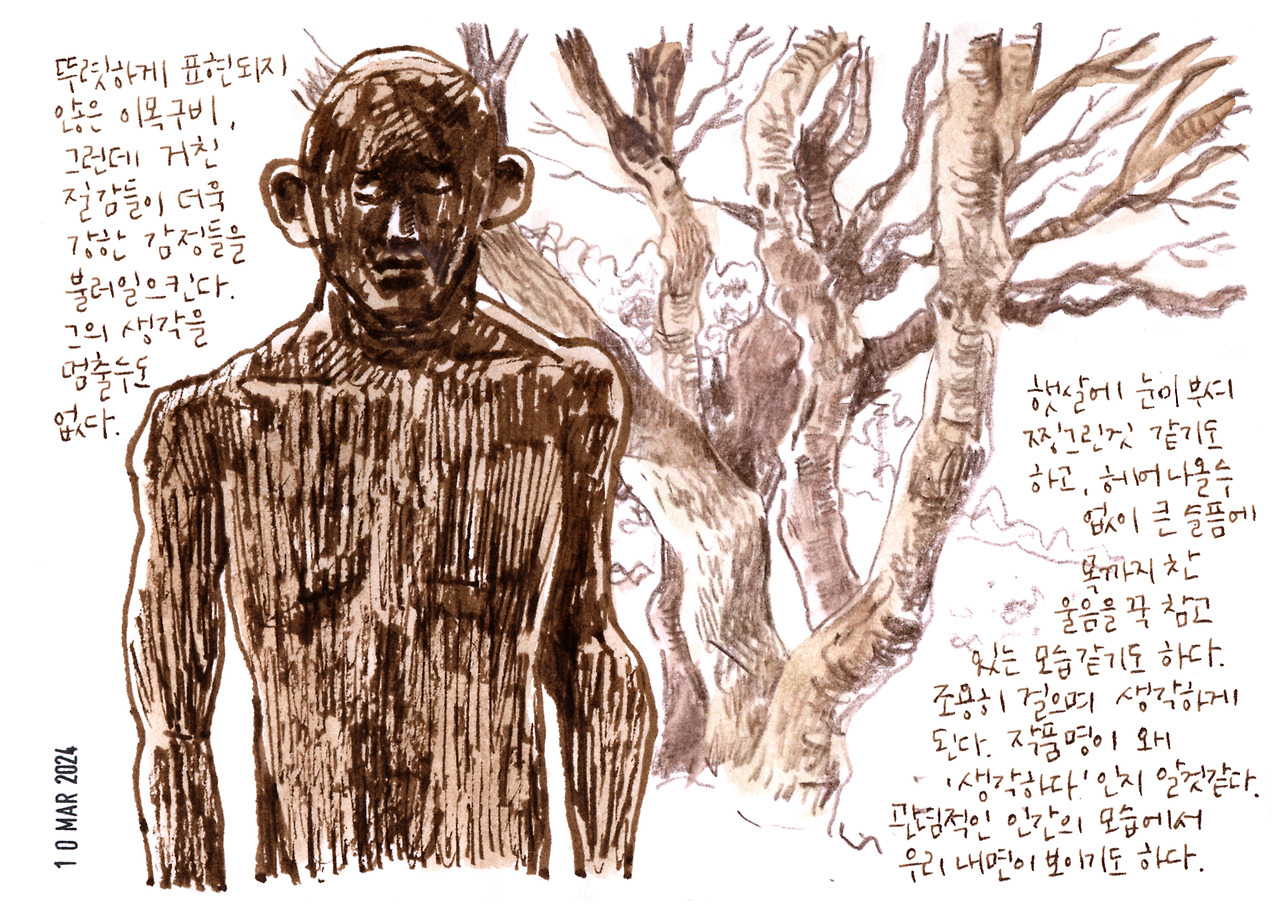 뚜렷하게 표현되지
않은 이목구비,
그런데 거친
질감들이 더욱
강한 감정들을
불러일으킨다.
그의 생각을
멈출수도
없다.
햇살에 눈이 부셔
찡그린것 같기도
하고, 헤어나올수
없이 큰 슬픔에
목까지 찬
울음을 꾹 참고
있는 모습같기도 하다.
조용히 걸으며 생각하게
된다. 작품명이 왜
'생각하다' 인지 알것같다.
관념적인 인간의 모습에서
우리 내면이 보이기도 하다.
10 MAR 2024